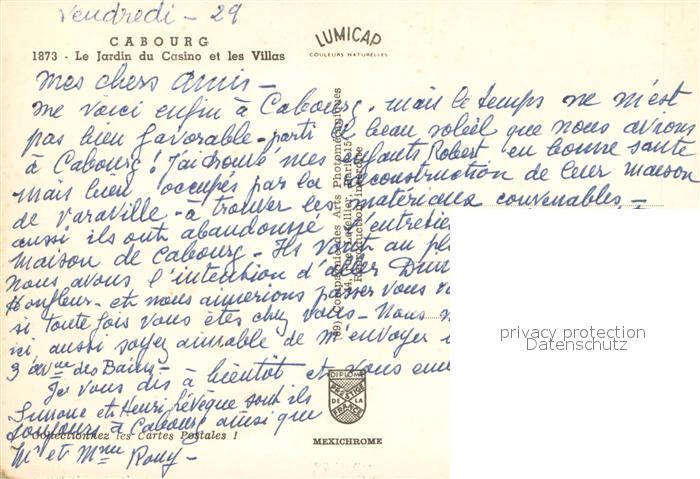 Vendredi - 29
CABOURG
1873 - Le Jardin du Casino et les Villas
LUMICAP
COULEURS NATURELLES
Mes chers Amis -
me voici enfin à Cabourg. mais le temps ne m'est
pas bien favorable - parti le beau soleil que nous avions
à Cabourg! J'ai trouvé mes enfants Robert en bonne santé
mais bien occupés par la reconstruction de leur maison
de Varaville - à trouver les matériaux convenables. -
aussi ils ont abandonné l'entretie
maison de Cabourg - Ils vont au pl
Nous avons l'intention d'aller Dim
Honfleur - et nous aimerions passer vous v
si toute fois vous êtes chez vous - Nous
ici, aussi soyez aimable de m'envoyer
3 avnue des Bains -
Je vous dis à bientôt et vous em
Simone et Henri Lévêque sont ils
toujours à Cabourg ainsi que
Mr et Mme Rouy -
Collectionnez les Cartes Postales !
(69) Compagnie des Arts Photomécaniques
Paris-15
Reproduction interdite
DIPLOME
PRESTIGE
DE LA
FRANCE
MEXICHROME
privacy protection
Datenschutz